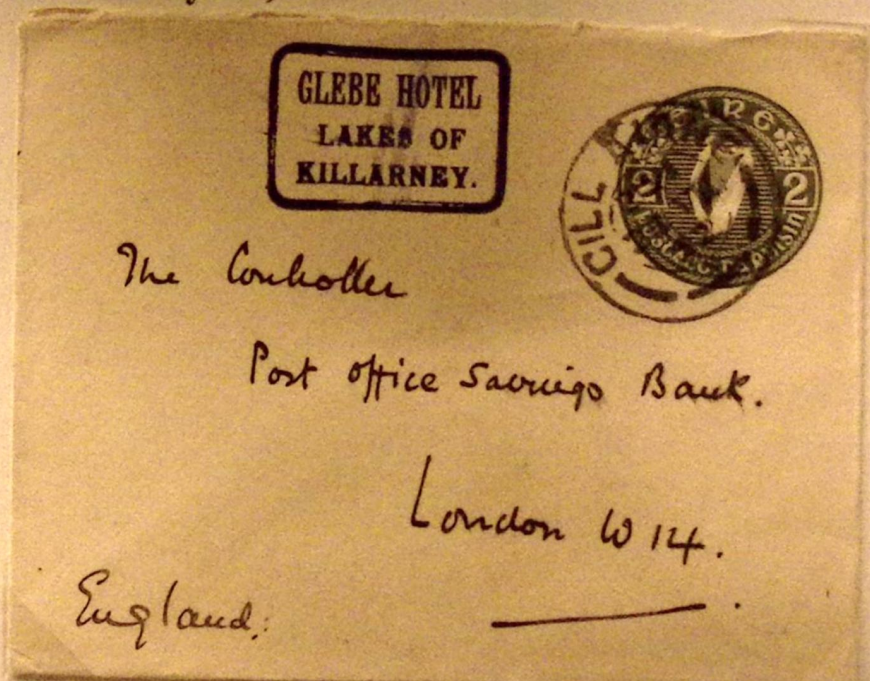 GLEBE HOTEL
LAKES OF
KILLARNEY.
CILL
2 2
The Controller
Post Office Savings Bank.
London W 14.
England.